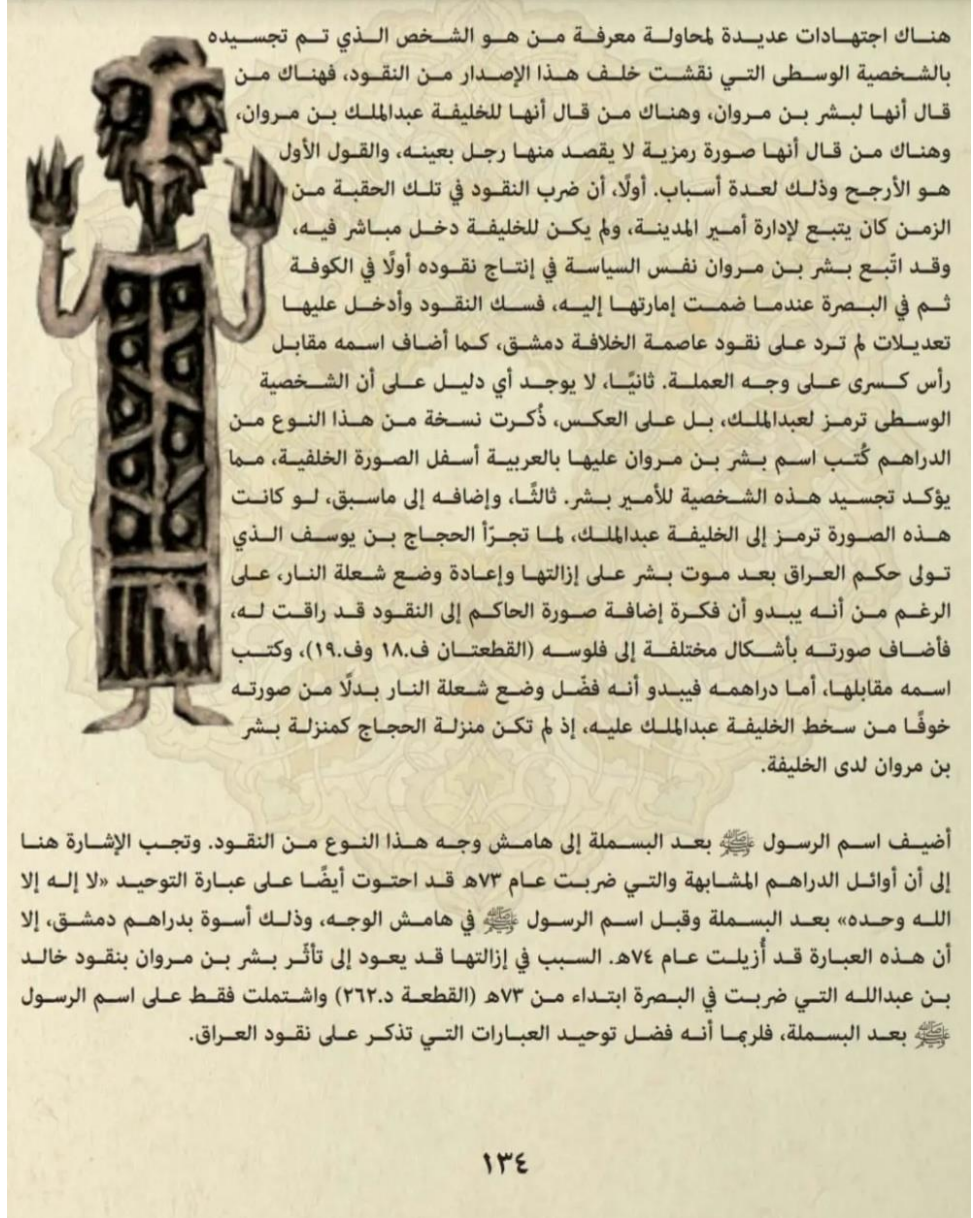 هناك اجتهادات عديدة لمحاولة معرفة من هو الشخص الذي تم تجسيده
بالشخصية الوسطى التي نقشت خلف هذا الإصدار من النقود، فهناك من
قال أنها لبشر بن مروان، وهناك من قال أنها للخليفة عبدالملك بن مروان،
وهناك من قال أنها صورة رمزية لا يقصد منها رجل بعينه، والقول الأول
هو الأرجح وذلك لعدة أسباب. أولًا، أن ضرب النقود في تلك الحقبة من
الزمن كان يتبع لإدارة أمير المدينة، ولم يكن للخليفة دخل مباشر فيه،
وقد اتّبع بشر بن مروان نفس السياسة في إنتاج نقوده أولًا في الكوفة
ثم في البصرة عندما ضمت إمارتها إليه، فسك النقود وأدخل عليها
تعديلات لم ترد على نقود عاصمة الخلافة دمشق، كما أضاف اسمه مقابل
رأس كسرى على وجه العملة. ثانيًا، لا يوجد أي دليل على أن الشخصية
الوسطى ترمز لعبدالملك، بل على العكس، ذُكرت نسخة من هذا النوع من
الدراهم كُتب اسم بشر بن مروان عليها بالعربية أسفل الصورة الخلفية، مما
يؤكد تجسيد هذه الشخصية للأمير بشر. ثالثًا، وإضافه إلى ماسبق، لو كانت
هذه الصورة ترمز إلى الخليفة عبدالملك، لما تجرّأ الحجاج بن يوسف الذي
تولى حكم العراق بعد موت بشر على إزالتها وإعادة وضع شعلة النار، على
الرغم من أنه يبدو أن فكرة إضافة صورة الحاكم إلى النقود قد راقت له،
فأضاف صورته بأشكال مختلفة إلى فلوسه (القطعتان ف.١٨ وف.١٩)، وكتب
اسمه مقابلها، أما دراهمه فيبدو أنه فضّل وضع شعلة النار بدلًا من صورته
خوفًا من سخط الخليفة عبدالملك عليه، إذ لم تكن منزلة الحجاج كمنزلة بشر
بن مروان لدى الخليفة.
أضيف اسم الرسول ﷺ بعد البسملة إلى هامش وجه هذا النوع من النقود. وتجب الإشارة هنا
إلى أن أوائل الدراهم المشابهة والتي ضربت عام ٧٣هـ قد احتوت أيضًا على عبارة التوحيد «لا إله إلا
الله وحده» بعد البسملة وقبل اسم الرسول ﷺ في هامش الوجه، وذلك أسوة بدراهم دمشق، إلا
أن هذه العبارة قد أُزيلت عام ٧٤هـ. السبب في إزالتها قد يعود إلى تأثّر بشر بن مروان بنقود خالد
بن عبدالله التي ضربت في البصرة ابتداء من ٧٣هـ (القطعة د.٢٦٢) واشتملت فقط على اسم الرسول
ﷺ بعد البسملة، فلربما أنه فضل توحيد العبارات التي تذكر على نقود العراق.
١٣٤